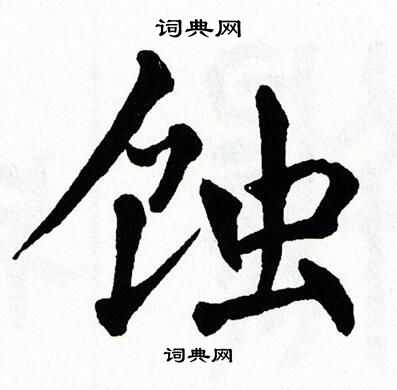 词典网
蚀
词典网